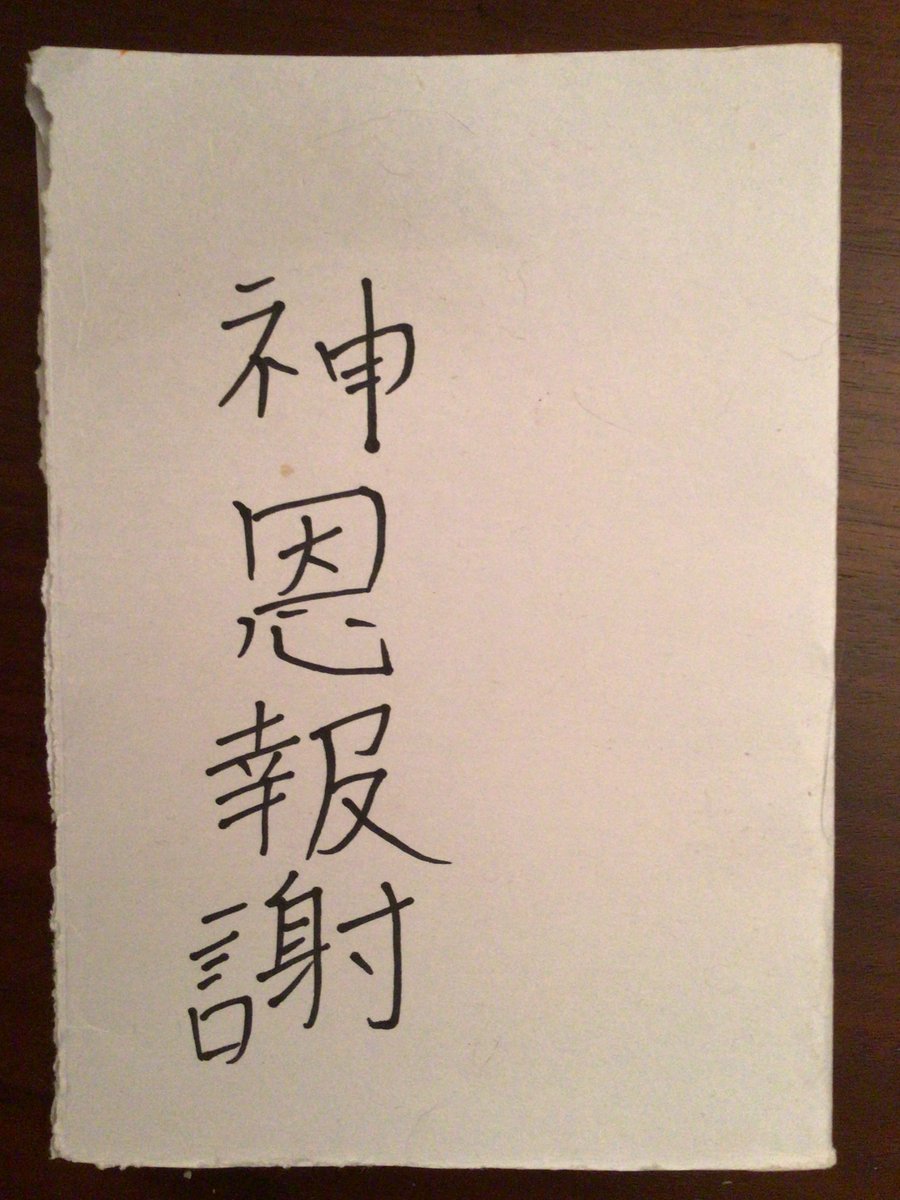 神恩報謝